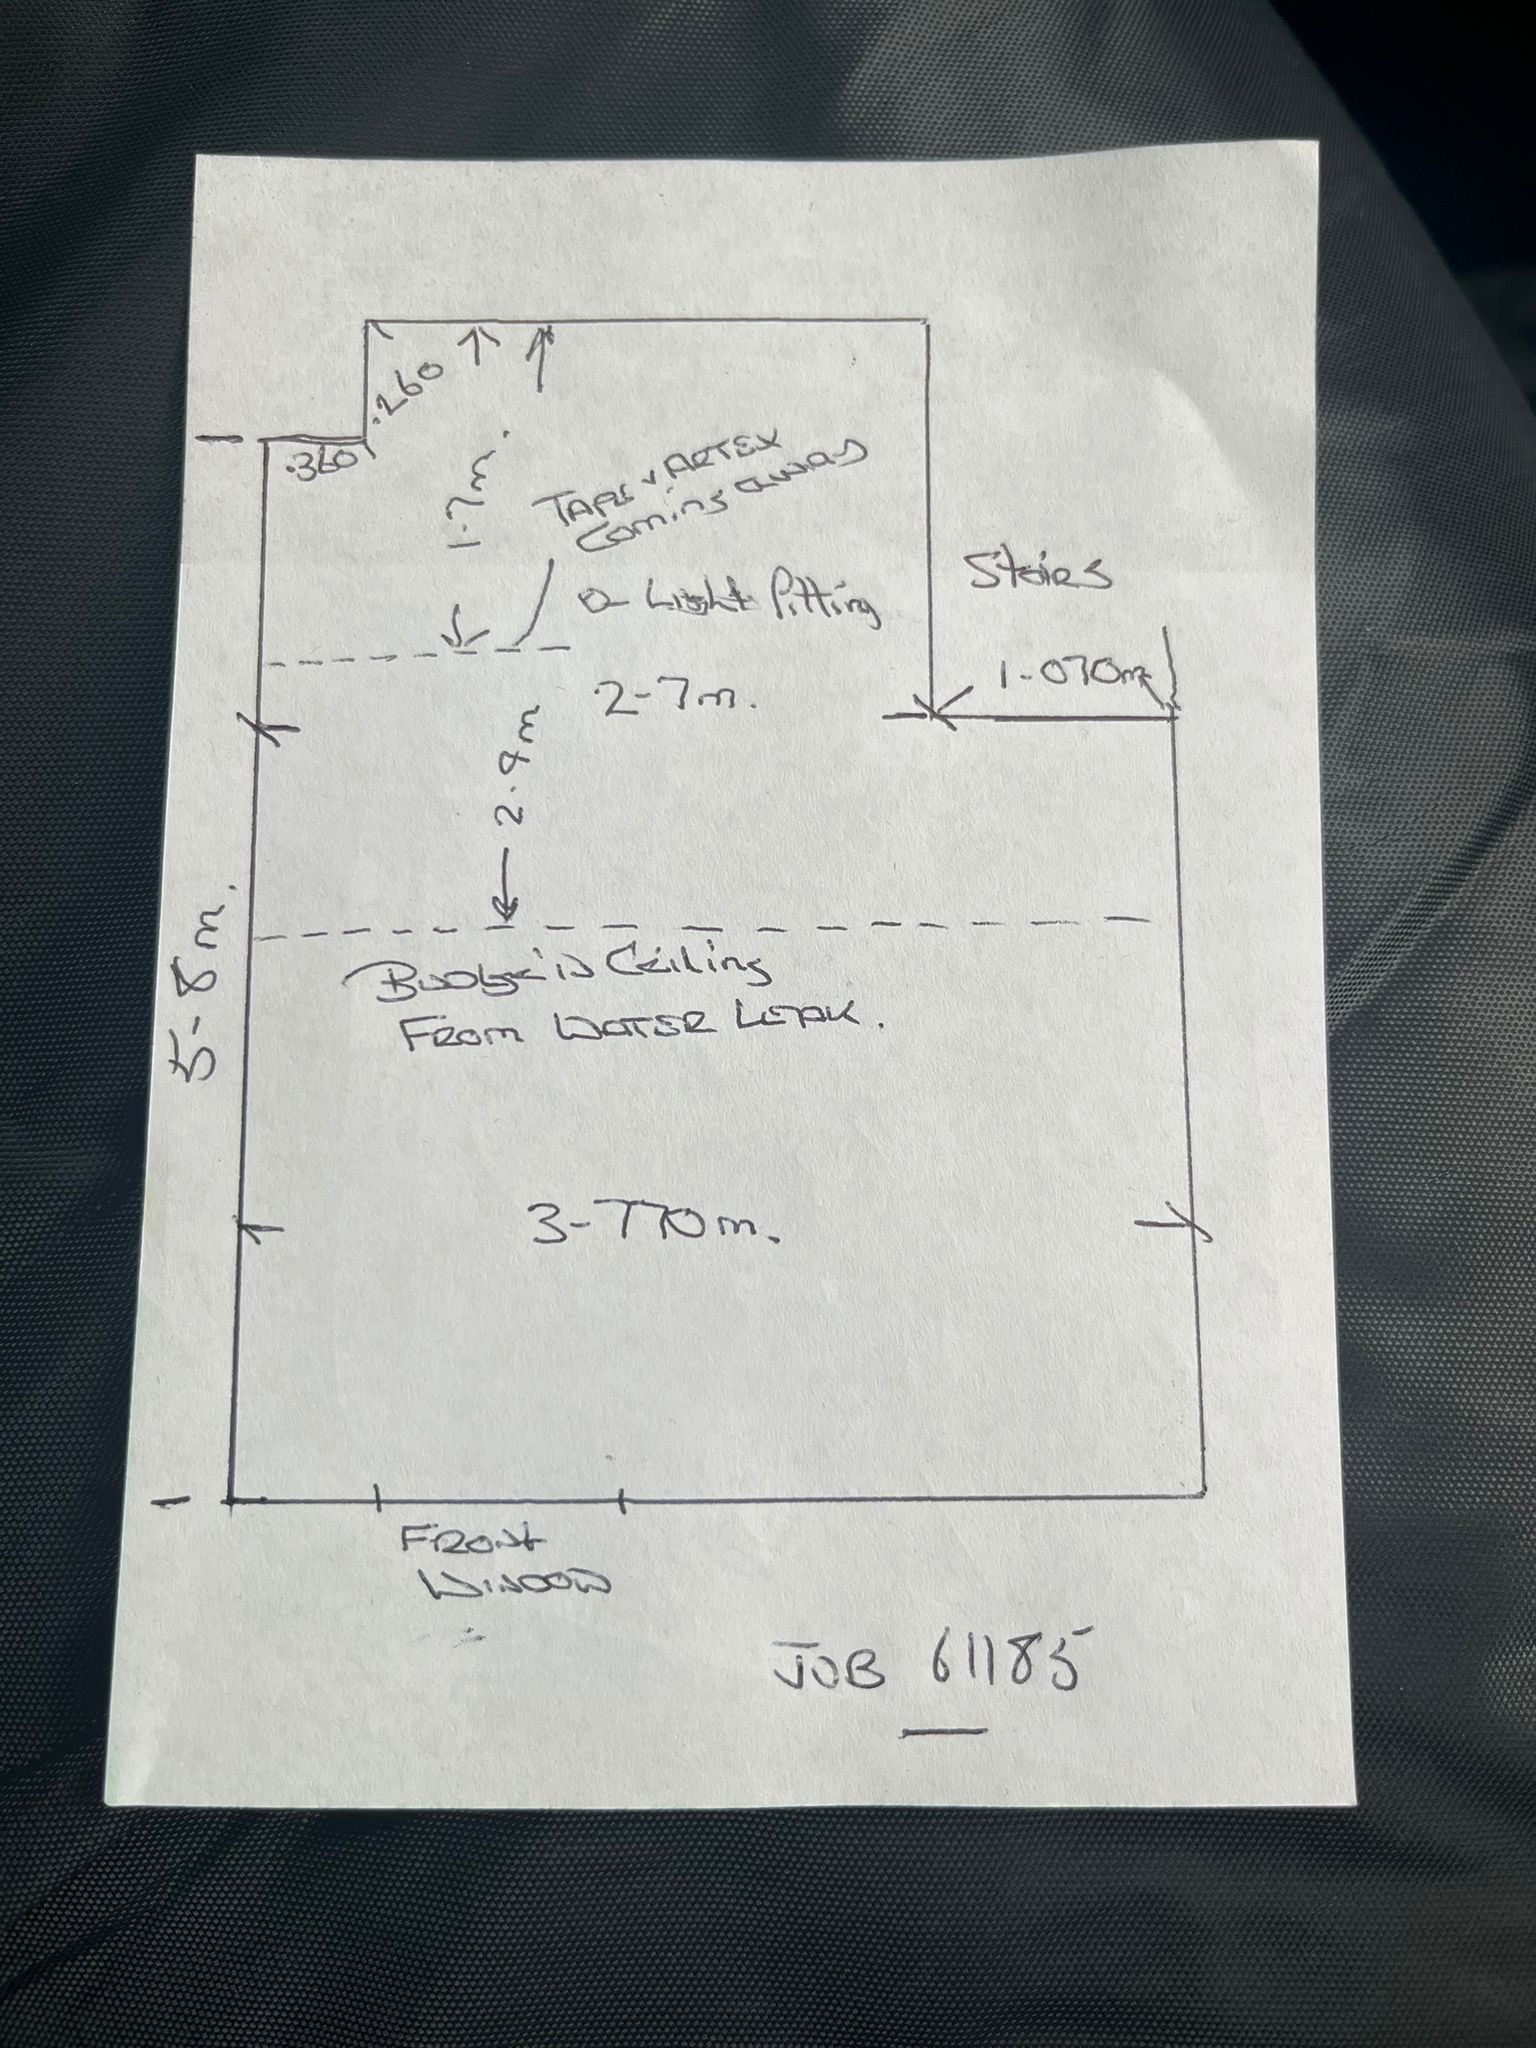 .260
.360
1.7m.
TAPE & ARTEX
Coming away
o Light Fitting
Stairs
1-070m
2-7m.
2.9m
5-8m.
Buldge in Ceiling
From WATER LEAK.
3-770m.
FRONT
WINDOW
JOB 61185